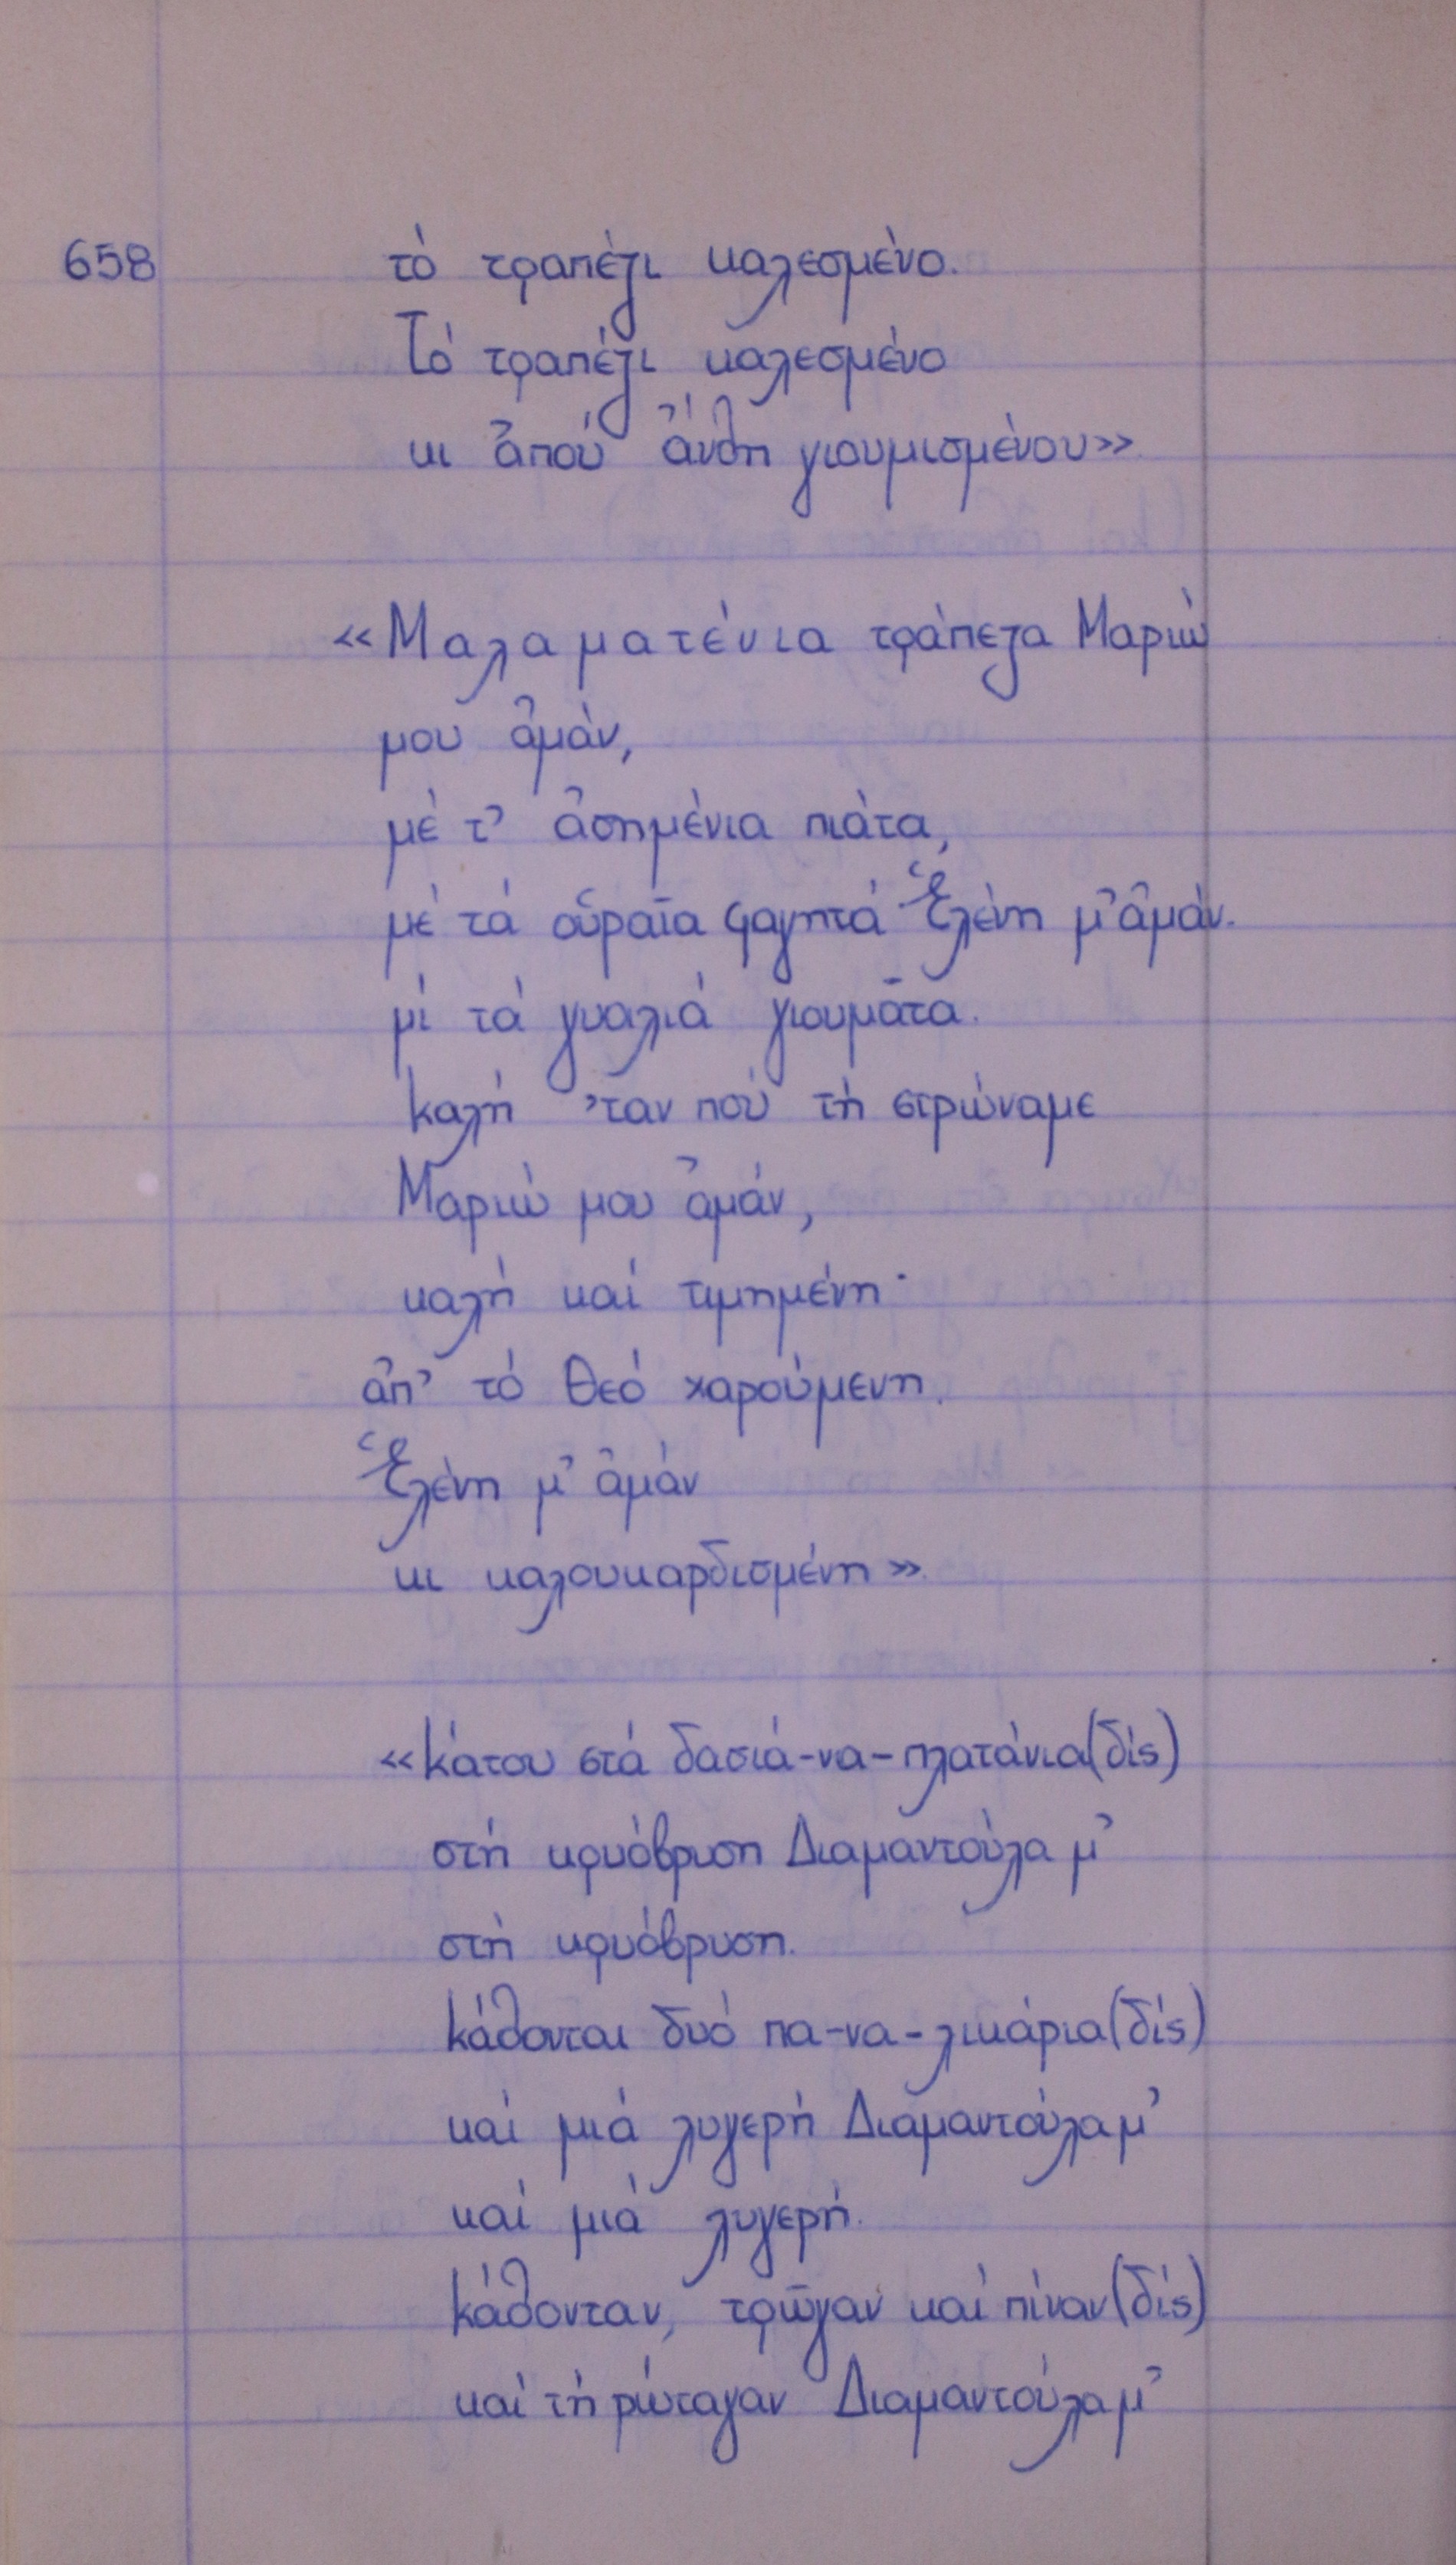 658 τό τραπέζι καλεσμένο.
Τό τραπέζι καλεσμένο
κι ἀπού ἄνθη γιουμισμένου»
«Μαλαματένια τράπεζα Μαριώ
μου ἀμάν,
μέ τ' ἀσημένια πιάτα,
μέ τά οὑραῖα φαγητά Ἑλένη μ' ἀμάν.
μί τά γυαλιά γιουμᾶτα.
καλή 'ταν πού τή στρώναμε
Μαριώ μου ἀμάν,
καλή καί τιμημένη·
ἀπ' τό Θεό χαρούμενη.
Ἑλένη μ' ἀμάν
κι καλουκαρδισμένη»
«κάτου στά δασιά-να-πλατάνια (δίς)
στή κρυόβριση Διαμαντούλα μ'
στή κρυόβρυση.
κάθονται δυό πα-να-λικάρια (δίς)
καί μιά λυγερή Διαμαντούλα μ'
καί μιά λυγερή.
κάθονταν, τρῶγαν καί πίναν (δίς)
καί τή ρώταγαν Διαμαντούλα μ'